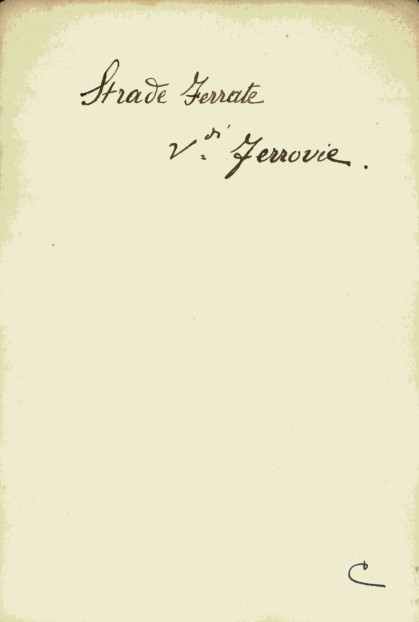 Strade Ferrate
V.di Ferrovie.
C